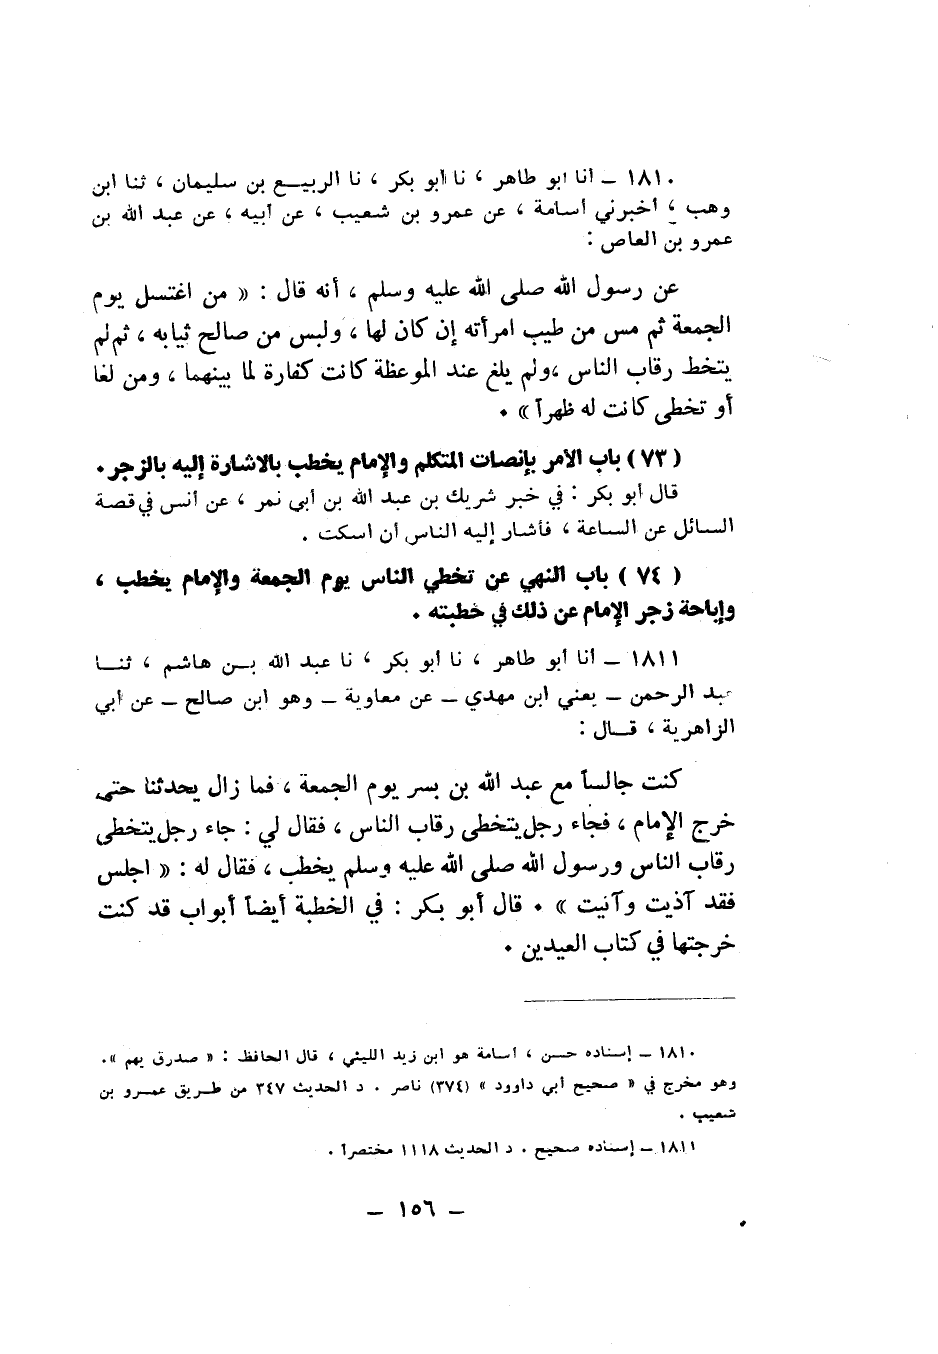 ١٨١٠ ــ أنا أبو طاهر ، نا أبو بكر ، نا الربيـع بن سليمان ، ثنا ابن
وهب ، أخبرني أسامة ، عن عمرو بن شعيب ، عن أبيه ، عن عبد الله بن
عمرو بن العاص :
عن رسول الله صلى الله عليه وسلم ، أنه قال : « من اغتسل يوم
الجمعة ثم مس من طيب امرأته إن كان لها ، ولبس من صالح ثيابه ، ثم لم
يتخط رقاب الناس ، ولم يلغ عند الموعظة كانت كفارة لما بينهما ، ومن لغا
أو تخطى كانت له ظهراً » .
( ٧٣ ) باب الأمر بإنصات المتكلم والإمام يخطب بالاشارة إليه بالزجر .
قال أبو بكر : في خبر شريك بن عبد الله بن أبي نمر ، عن أنس في قصة
السائل عن الساعة ، فأشار إليه الناس أن اسكت .
( ٧٤ ) باب النهي عن تخطي الناس يوم الجمعة والإمام يخطب ،
وإباحة زجر الإمام عن ذلك في خطبته .
١٨١١ ــ أنا أبو طاهر ، نا أبو بكر ، نا عبد الله بـن هاشم ، ثنـا
عبد الرحمن ــ يعني ابن مهدي ــ عن معاوية ــ وهو ابن صالح ــ عن أبي
الزاهرية ، قـال :
كنت جالساً مع عبد الله بن بسر يوم الجمعة ، فما زال يحدثنا حتى
خرج الإمام ، فجاء رجل يتخطى رقاب الناس ، فقال لي : جاء رجل يتخطى
رقاب الناس ورسول الله صلى الله عليه وسلم يخطب ، فقال له : « اجلس
فقد آذيت وآنيت » . قال أبو بكر : في الخطبة أيضاً أبواب قد كنت
خرجتها في كتاب العيدين .
١٨١٠ ــ إسناده حسن ، أسامة هو ابن زيد الليثي ، قال الحافظ : « صدرق يهم » .
وهو مخرج في « صحيح أبي داوود » (٣٧٤) ناصر . د الحديث ٣٤٧ من طـريق عمـرو بن
شعيب .
١٨١١ ــ إسناده صحيح . د الحديث ١١١٨ مختصراً .
ــ ١٥٦ ــ